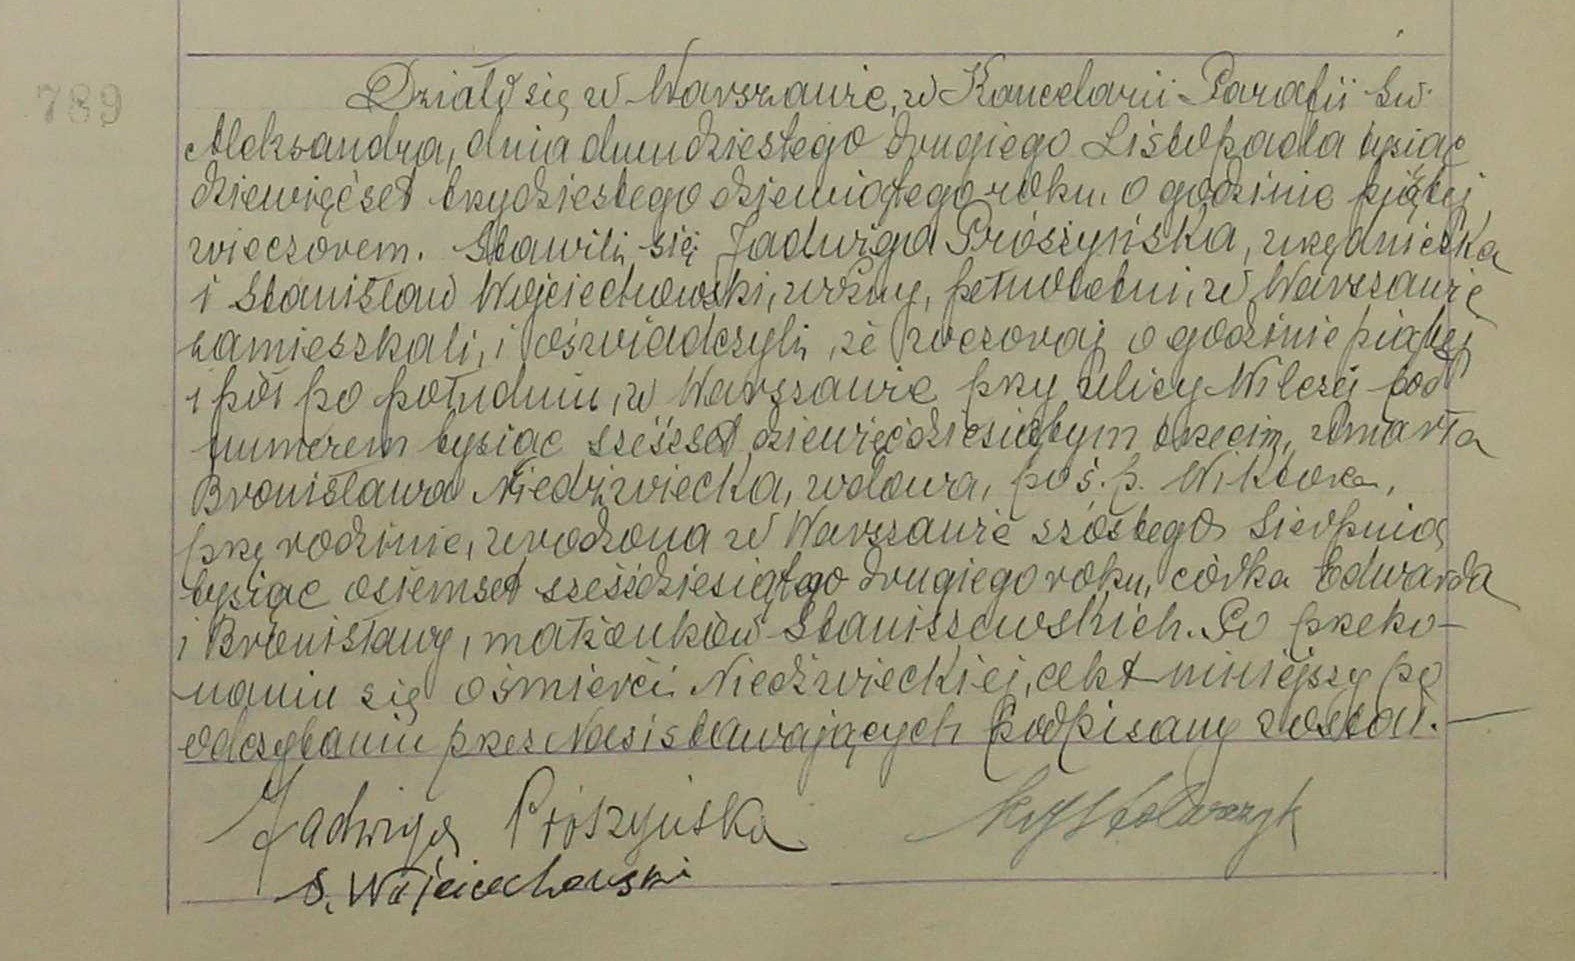 789
Działo się w Warszawie, w Kancelarii Parafii św.
Aleksandra, dnia dwudziestego drugiego Listopada tysiąc
dziewięćset trzydziestego dziewiątego roku, o godzinie piątej
wieczorem. Stawili się Jadwiga Prószyńska, urzędniczka
i Stanisław Wojciechowski, woźny, pełnoletni, w Warszawie
zamieszkali, i oświadczyli, że wczoraj o godzinie piątej
i pół po południu, w Warszawie przy ulicy Wilczej pod
numerem tysiąc sześćset dziewięćdziesiątym trzecim, zmarła
Bronisława Niedźwiecka, wdowa, po ś.p. Wiktorze,
przy rodzinie, urodzona w Warszawie szóstego Sierpnia
tysiąc osiemset sześćdziesiątego drugiego roku, córka Edwarda
i Bronisławy, małżonków Staniszewskich. Po przeko-
naniu się o śmierci Niedźwieckiej, akt niniejszy po
odczytaniu przez Nas i stawających podpisany został.—
Jadwiga Prószyńska
S. Wojciechowski